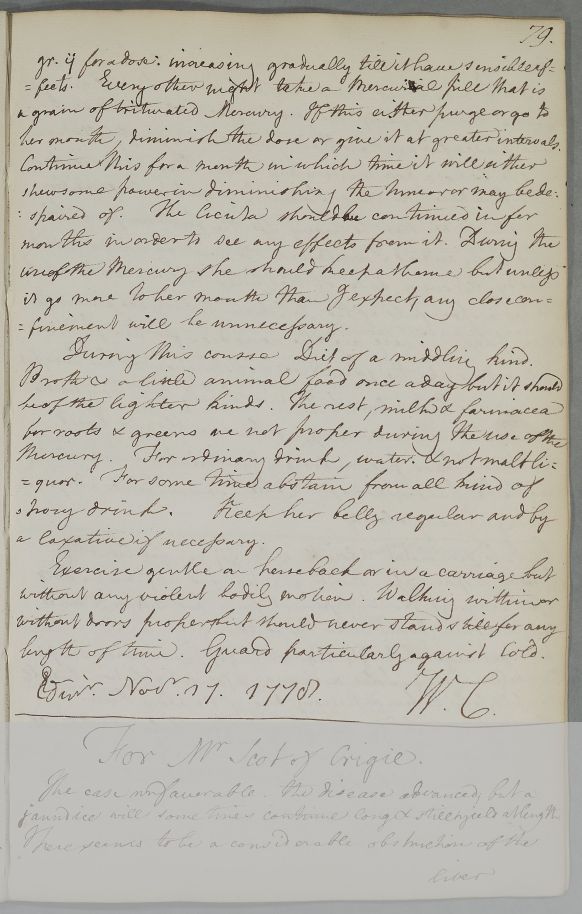 79.
gr. ij for a dose. increasing gradually till it have sensible ef-
= fects. Every other night take a Mercurial pill that is
a grain of triturated Mercury. If this either purge or go to
her mouth, diminish the dose or give it at greater intervals.
Continue this for a month in which time it will either
shew some power in diminishing the tumor or may be de:
: spaired of. The Cicuta should be continued in for
months in order to see any effects from it. During the
use of the Mercury she should keep at home but unless
it go more to her mouth than I expect, any close con=
= finement will be unnecessary.
During this course Diet of a middling kind.
Broth & a little animal food once a day but it should
be of the lighter kinds. The rest, milk & farinacea
for roots & greens are not proper during the use of the
Mercury. For ordinary drink, water. & not malt li=
= quor. For some time abstain from all kind of
strong drink. Keep her belly regular and by
a laxative if necessary.
Exercise gentle on horseback or in a carriage but
without any violent bodily motion. Walking within or
without doors proper but should never stand still for any
length of time. Guard particularly against Cold.
Edinr. Novr. 17. 1778. W. C.
For Mr Scot of Crigie.
The case unfavourable. the disease advanced, but a
jaundice will sometimes continue long & still yield at length
There seems to be a considerable obstruction of the
liver